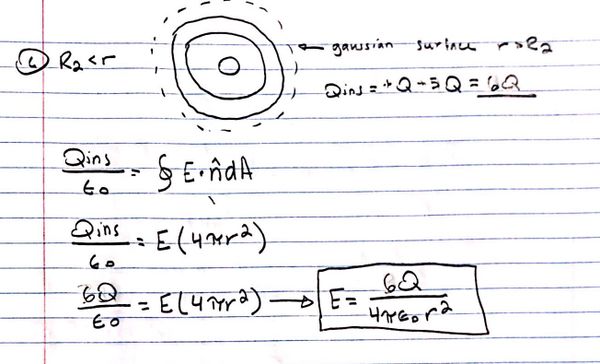 ← gaussian surface r>R2
④ R2 < r
Qins = +Q + 5Q = 6Q
Qins/ϵ0 = ∮ E·n̂dA
Qins/ϵ0 = E(4πr²)
6Q/ϵ0 = E(4πr²) → E = 6Q/4πϵ0r²